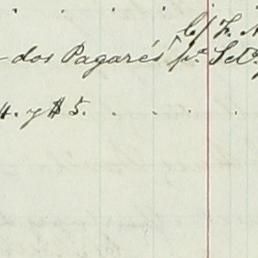 c/ F. A
- dos Pagarés pr. Set.
4. y $ 5. . . . .